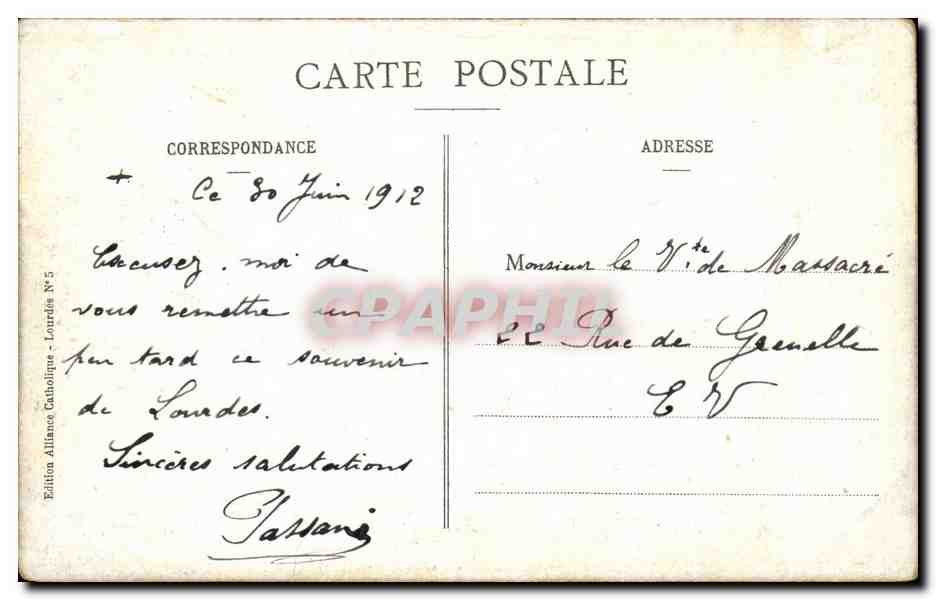 CARTE POSTALE
CORRESPONDANCE
Ce 30 Juin 1912
Excusez-moi de
vous remettre un
peu tard ce souvenir
de Lourdes.
Sincères salutations
ADRESSE
Monsieur le Vte de Massacré
22 Rue de Grenelle
E V
Edition Alliance Catholique - Lourdes N° 5
CPAPHIL